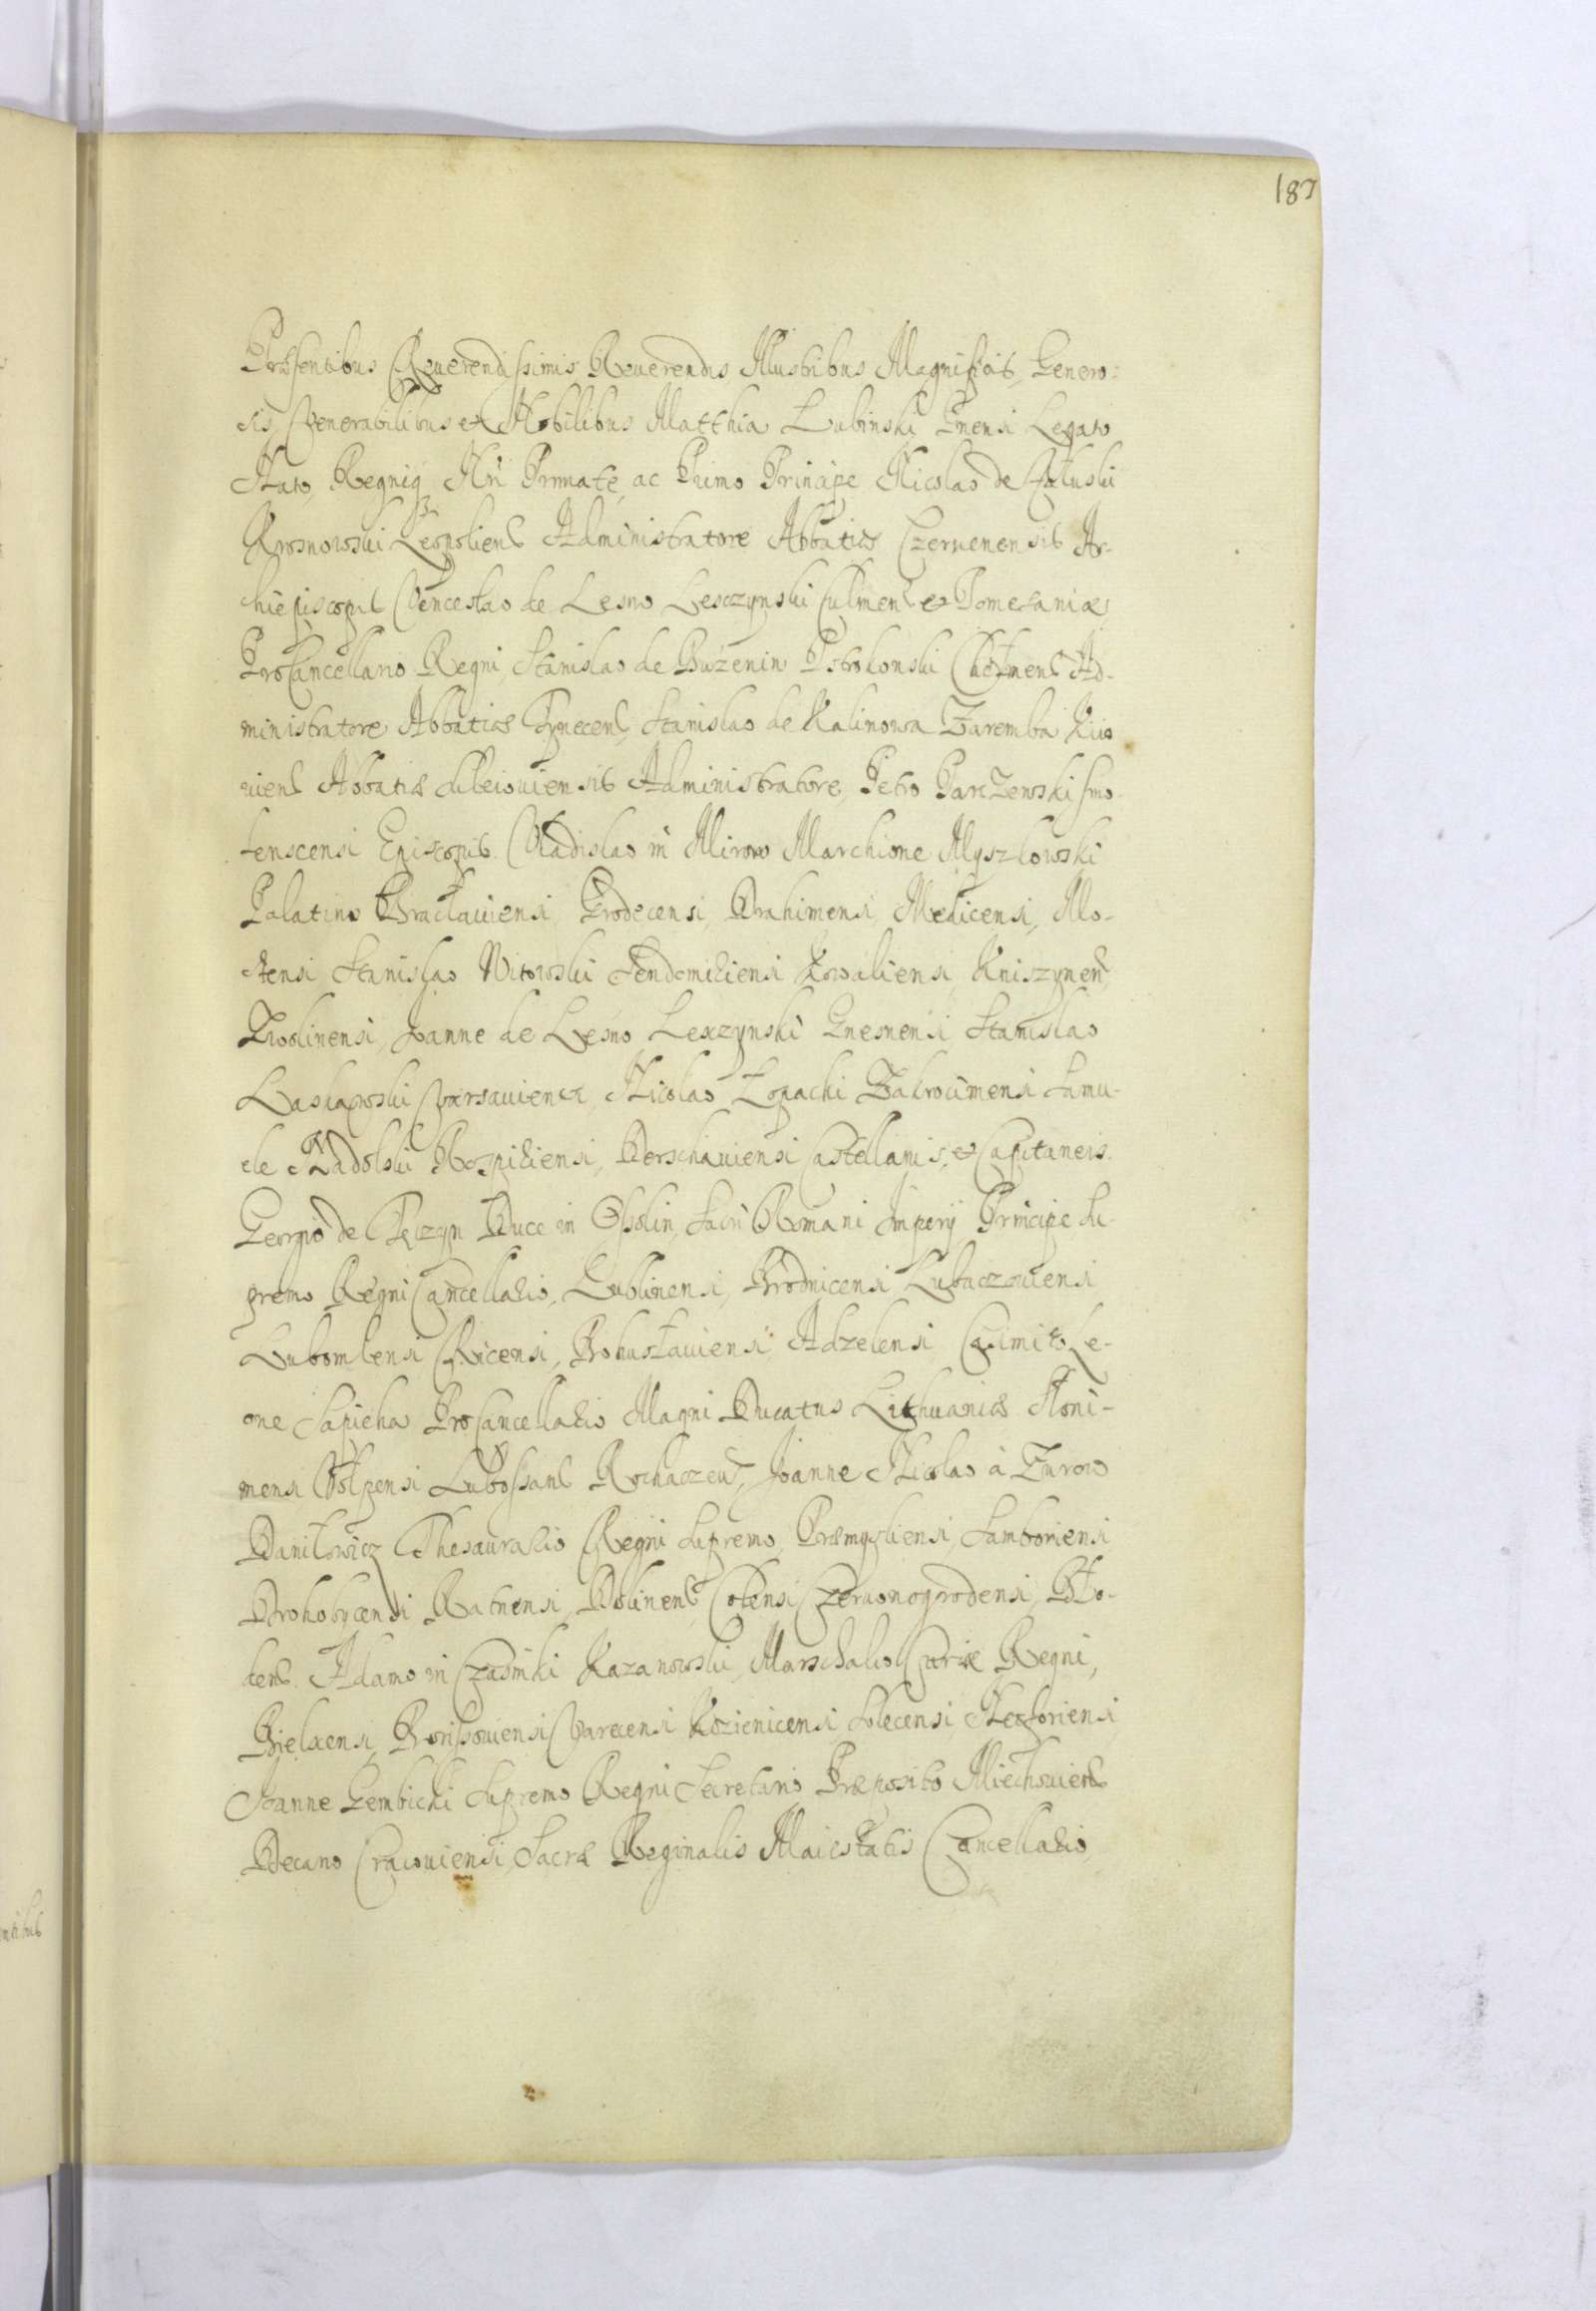 187
Præsentibus Reuerendissimis Reuerendis Illustribus Magnificis, Genero-
sis, Venerabilibus et Nobilibus Matthia Lubinski Gnensi Legato
Nato, Regniq Nri Primate, ac Primo Principe Nicolao de
Krosnowski Leopoliens Administratore Abbatiæ Czeruenensis Ar-
chiepiscopis Venceslao de Lesno Lesczynski Culmens et Pomesaniæ
ProCancellario Regni, Stanislao de Buzenin Pstrokonski Chełmens Ad-
ministratore Abbatiæ Tynecens, Stanislao de Kalinowa Zaremba Kiio
uiens Abbatiæ Suleiouiensis Administratore, Petro Parczewski Smo-
lenscensi Episcopis. Vladislao in Mirow Marchione Myszkowski
Palatino Bracłauiensi, Grodecensi, Drahimensi, Medicensi, Mo-
stensi Stanislao Witowski Sendomiriensi Zowaliensi, Kniszynens
Zwolinensi, Joanne de Lesno Lesczynski Gnesnensi Stanislao
Varsauiensi, Nicolao Łopacki Zakrocimensi Samu-
ele Nadolski Rospiriensi, Derschauiensi Castellanis, et Capitaneis.
Georgio de Tęczyn Duce in Ossolin, Sacri Romani Imperij Principe Su-
premo Regni Cancellario, Lublinensi, Brodnicensi Lubaczouiensi,
Lubomlensi Ricensi, Bohusłauiensi Adzelensi Casimiro Le-
one Sapieha ProCancellario Magni Ducatus Lithuaniæ Słoni-
mensi Wołpensi Lubossans Rochaczeu, Joanne Nicolao à Zurow
Daniłowicz Thesaurario Regni Supremo, Præmysliensi, Samboriensi
Drohobycensi Ratnensi, Bolinens, Colensi Czerwonogrodensi, Bło-
tens. Adamo in Czasniki Kazanowski, Marschalco Curiæ Regni,
Bielscensi, Borissouiensi Varecensi Kozienicensi, Solecensi,
Joanne Gembicki Supremo Regni Secretario Præposito Miechouiens
Decano Cracouiensi, Sacræ Reginalis Maiestatis Cancellario,